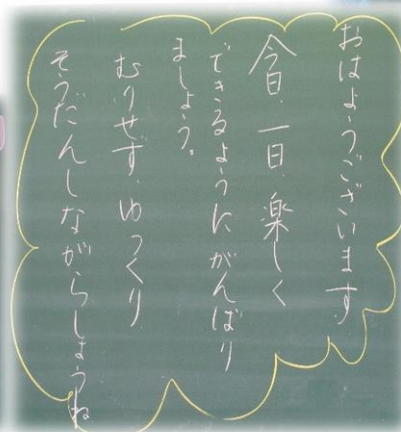 おはようございます
今日、一日、楽しく
できるようにがんばり
ましょう。
むりせず、ゆっくり
そうだんしながらしようね